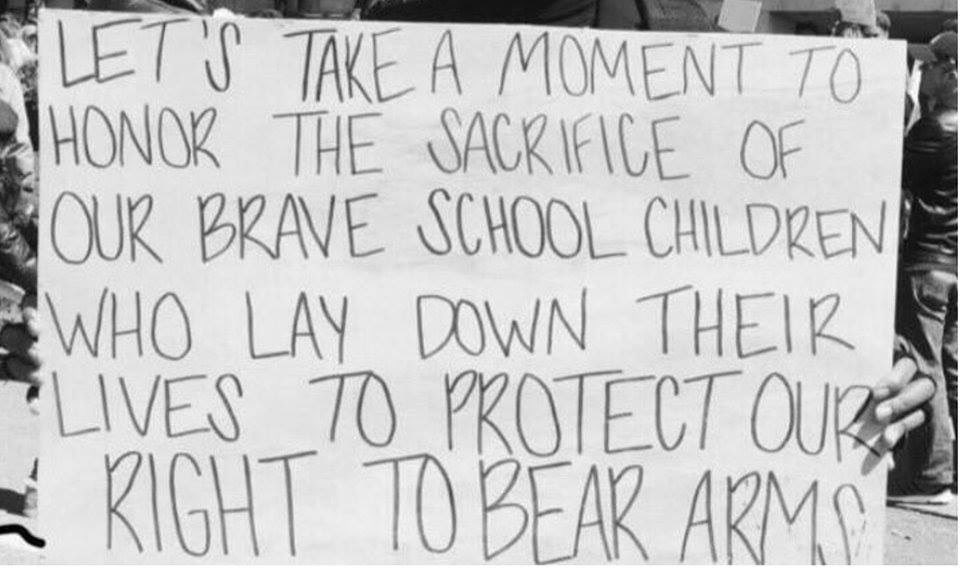 LET'S TAKE A MOMENT TO
HONOR THE SACRIFICE OF
OUR BRAVE SCHOOL CHILDREN
WHO LAY DOWN THEIR
LIVES TO PROTECT OUR
RIGHT TO BEAR ARMS